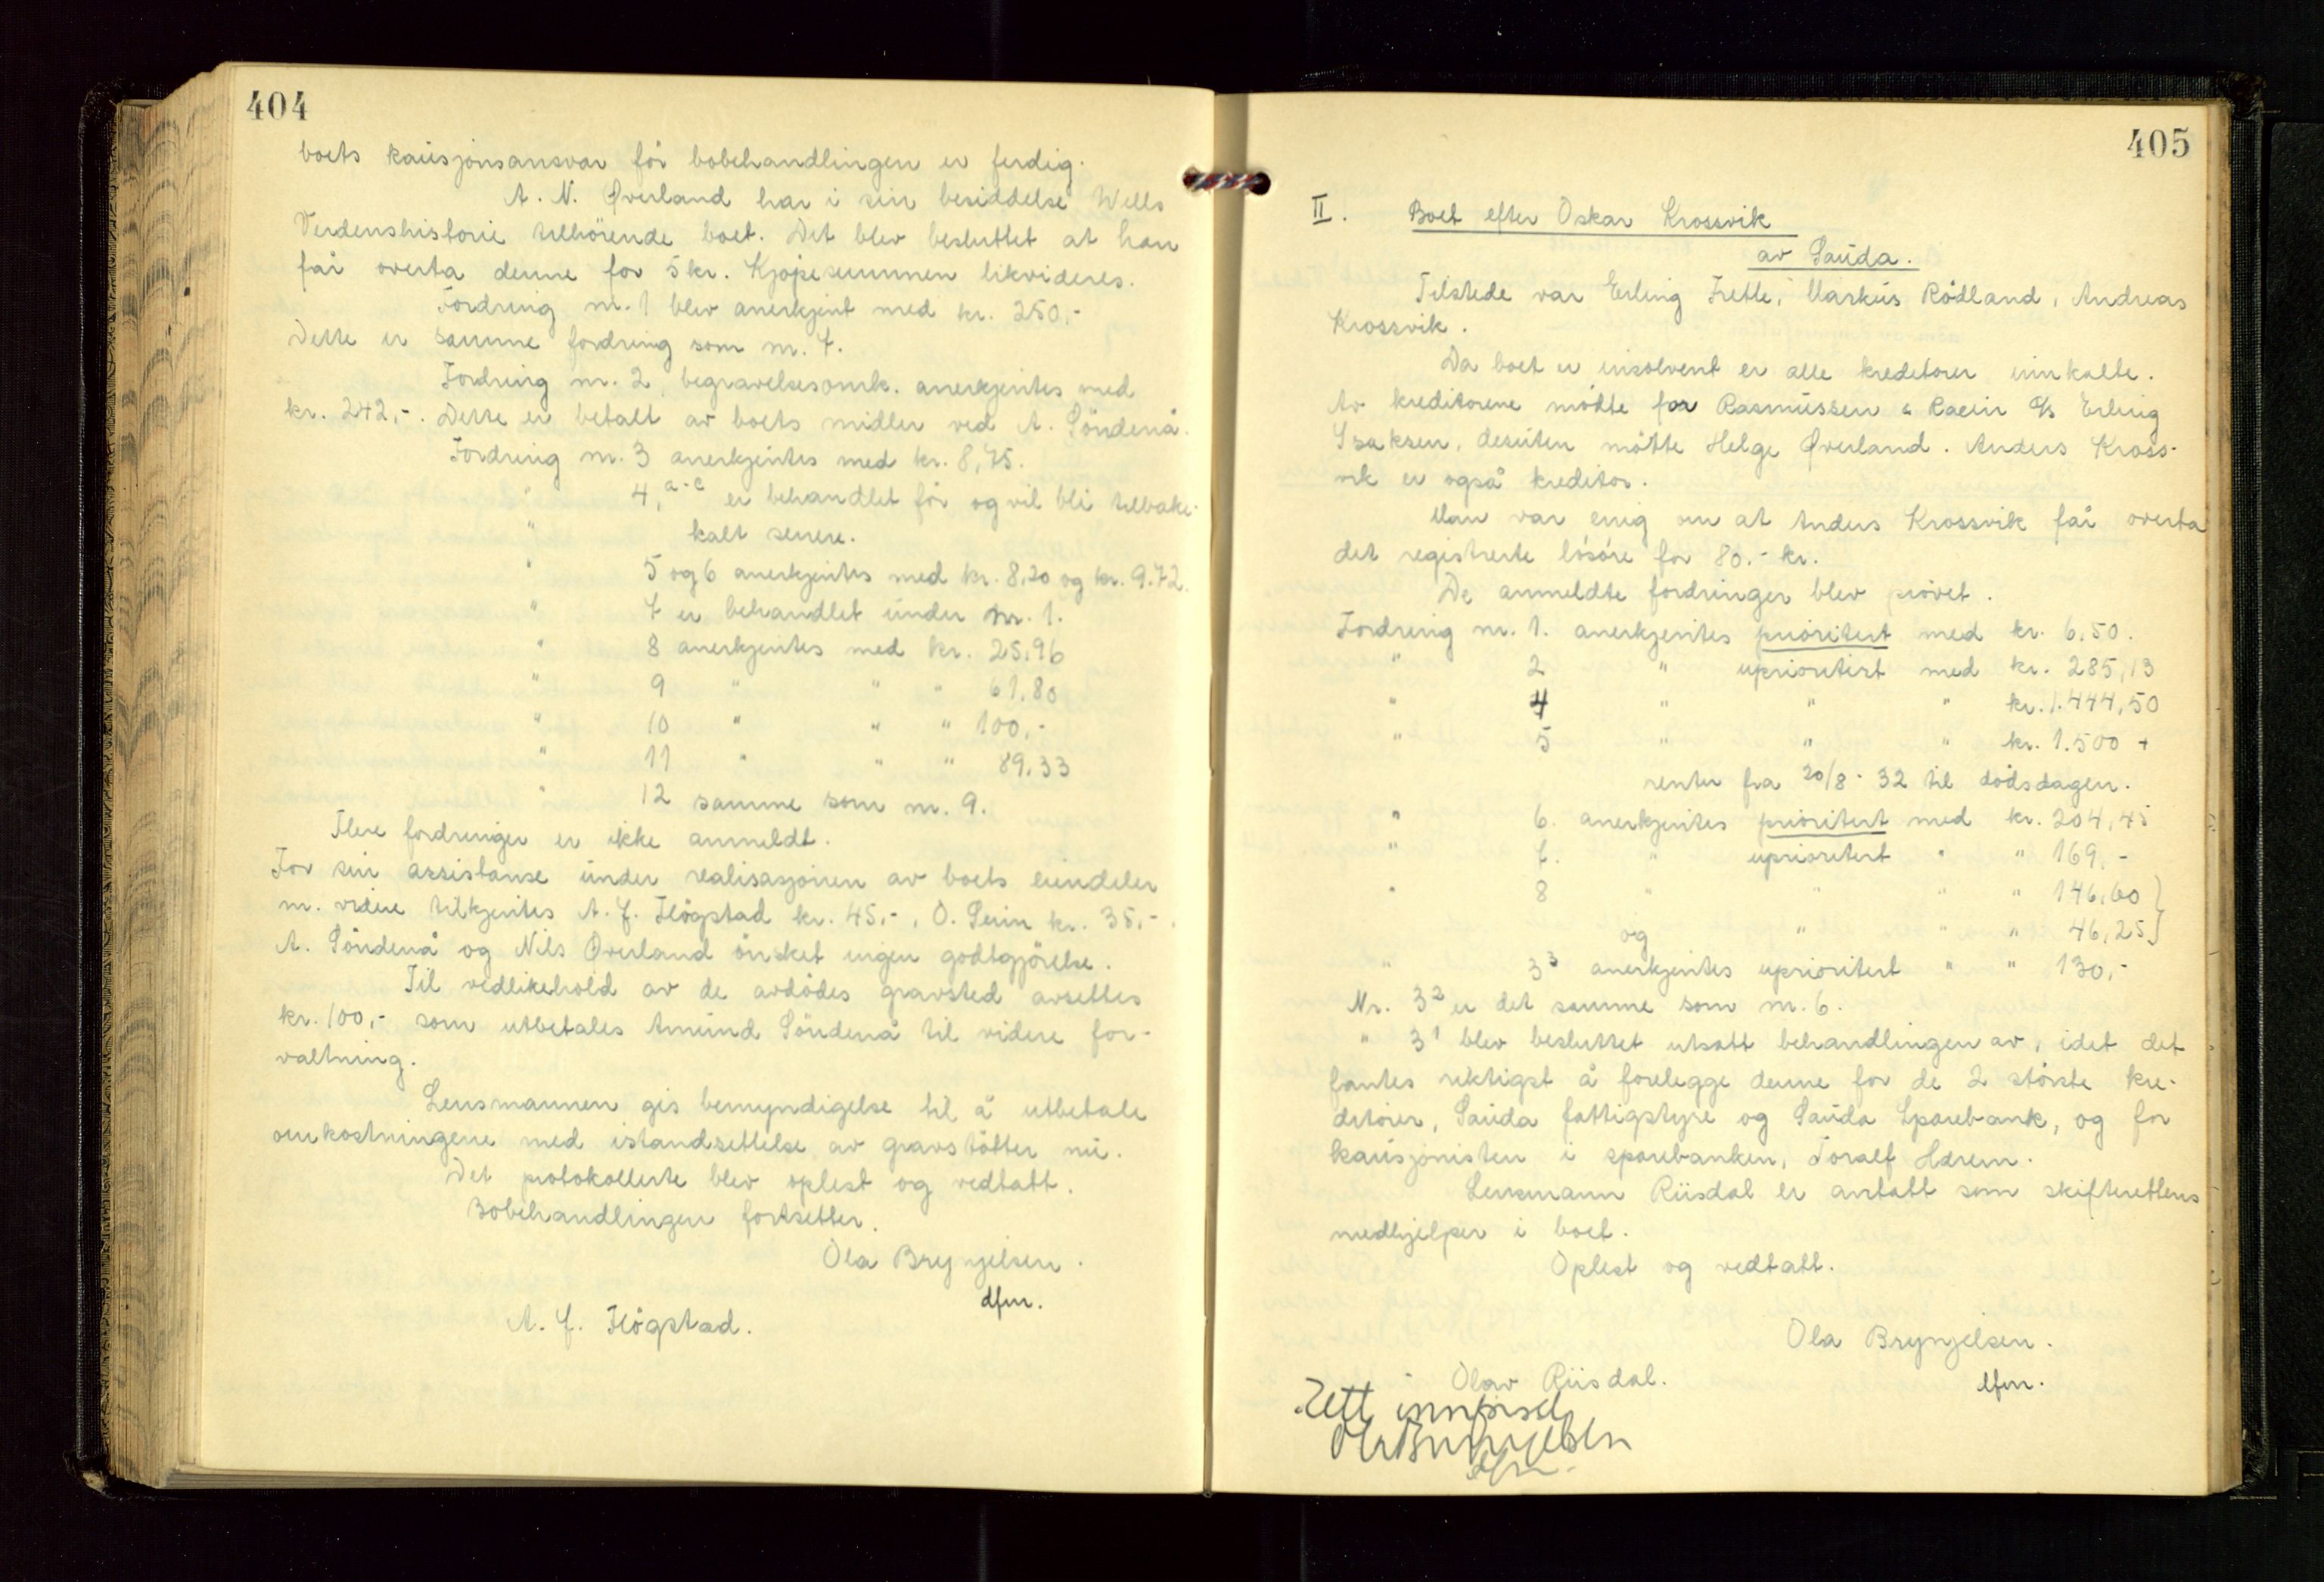 404
boets kausjonsansvar før bobehandlingen er ferdig.
A. N. Øverland har i sin besiddelse Wells
Verdenshistorie tilhörende boet. Det blev besluttet at han
får overta denne for 5 kr. Kjøpesummen likvideres.
Fordring nr. 1 blev anerkjent med kr. 250,-
Dette er samme fordring som nr. 7.
Fordring nr. 2, begravelsesomk. anerkjentes med
kr. 242,-. Dette er betalt av boets midler ved A. Söndenå.
Fordring nr. 3 anerkjentes med kr. 8,75.
" 4, a-c er behandlet för og vil bli tilbake-
" kalt senere.
" 5 og 6 anerkjentes med kr. 8,20 og kr. 9.72.
" 7 er behandlet under nr. 1.
" 8 anerkjentes med kr. 25,96
" 9 " " " 61.80
" 10 " " " 100,-
" 11 " " " 89.33
" 12 samme som nr. 9.
Flere fordringer er ikke anmeldt.
For sin assistanse under realisasjonen av boets eiendeler
m. videre tilkjentes A. J. Flögstad kr. 45,-, O. kr. 35,-.
A. Söndenå og Nils Øverland önsket ingen godtgjörelse.
Til vedlikehold av de avdödes gravsted avsettes
kr. 100,- som utbetales Amund Söndenå til videre for-
valtning.
Lensmannen gis bemyndigelse til å utbetale
omkostningene med istandsettelse av gravstötter nu.
Det protokollerte blev oplest og vedtatt.
Bobehandlingen fortsetter.
Ola Brynjelsen.
dfm.
A. J. Flögstad.
405
II. Boet efter Oskar Krossvik
av Sauda.
Tilstede var Erling Frette, Markus Rödland, Andreas
Krossvik.
Da boet er insolvent er alle kreditorer innkalte.
Av kreditorene mötte for Rasmussen & Racin A/S Erling
Isaksen, desuten mötte Helge Øverland. Anders Kross-
vik er også kreditor.
Man var enig om at Anders Krossvik får overta
det registrerte lösöre for 80.- kr.
De anmeldte fordringer blev prövet.
Fordring nr. 1. anerkjentes prioritert med kr. 6,50.
" 2 " uprioritert med kr. 285,13
" 4 " " " kr. 1.444,50
" 5 " " " kr. 1.500 +
renter fra 20/8-32 til dödsdagen.
" 6. anerkjentes prioritert med kr. 204,45
" 7. " uprioritert " " 169.-
" 8 " " " " 146,60 }
og " " " 46,25 }
" 3³ anerkjentes uprioritert " " 130,-
Nr. 3² er det samme som nr. 6.
" 3¹ blev besluttet utsatt behandlingen av, idet det
fantes riktigst å forelegge denne for de 2 störste kre-
ditorer, Sauda fattigstyre og Sauda Sparebank, og for
kausjonisten i sparebanken, Toralf Hærem.
Lensmann Riisdal er antatt som skifterettens
medhjelper i boet.
Oplest og vedtatt.
Ola Brynjelsen.
dfm.
Olav Riisdal.
Rett innført
Ola Brynjelsen
dfm.